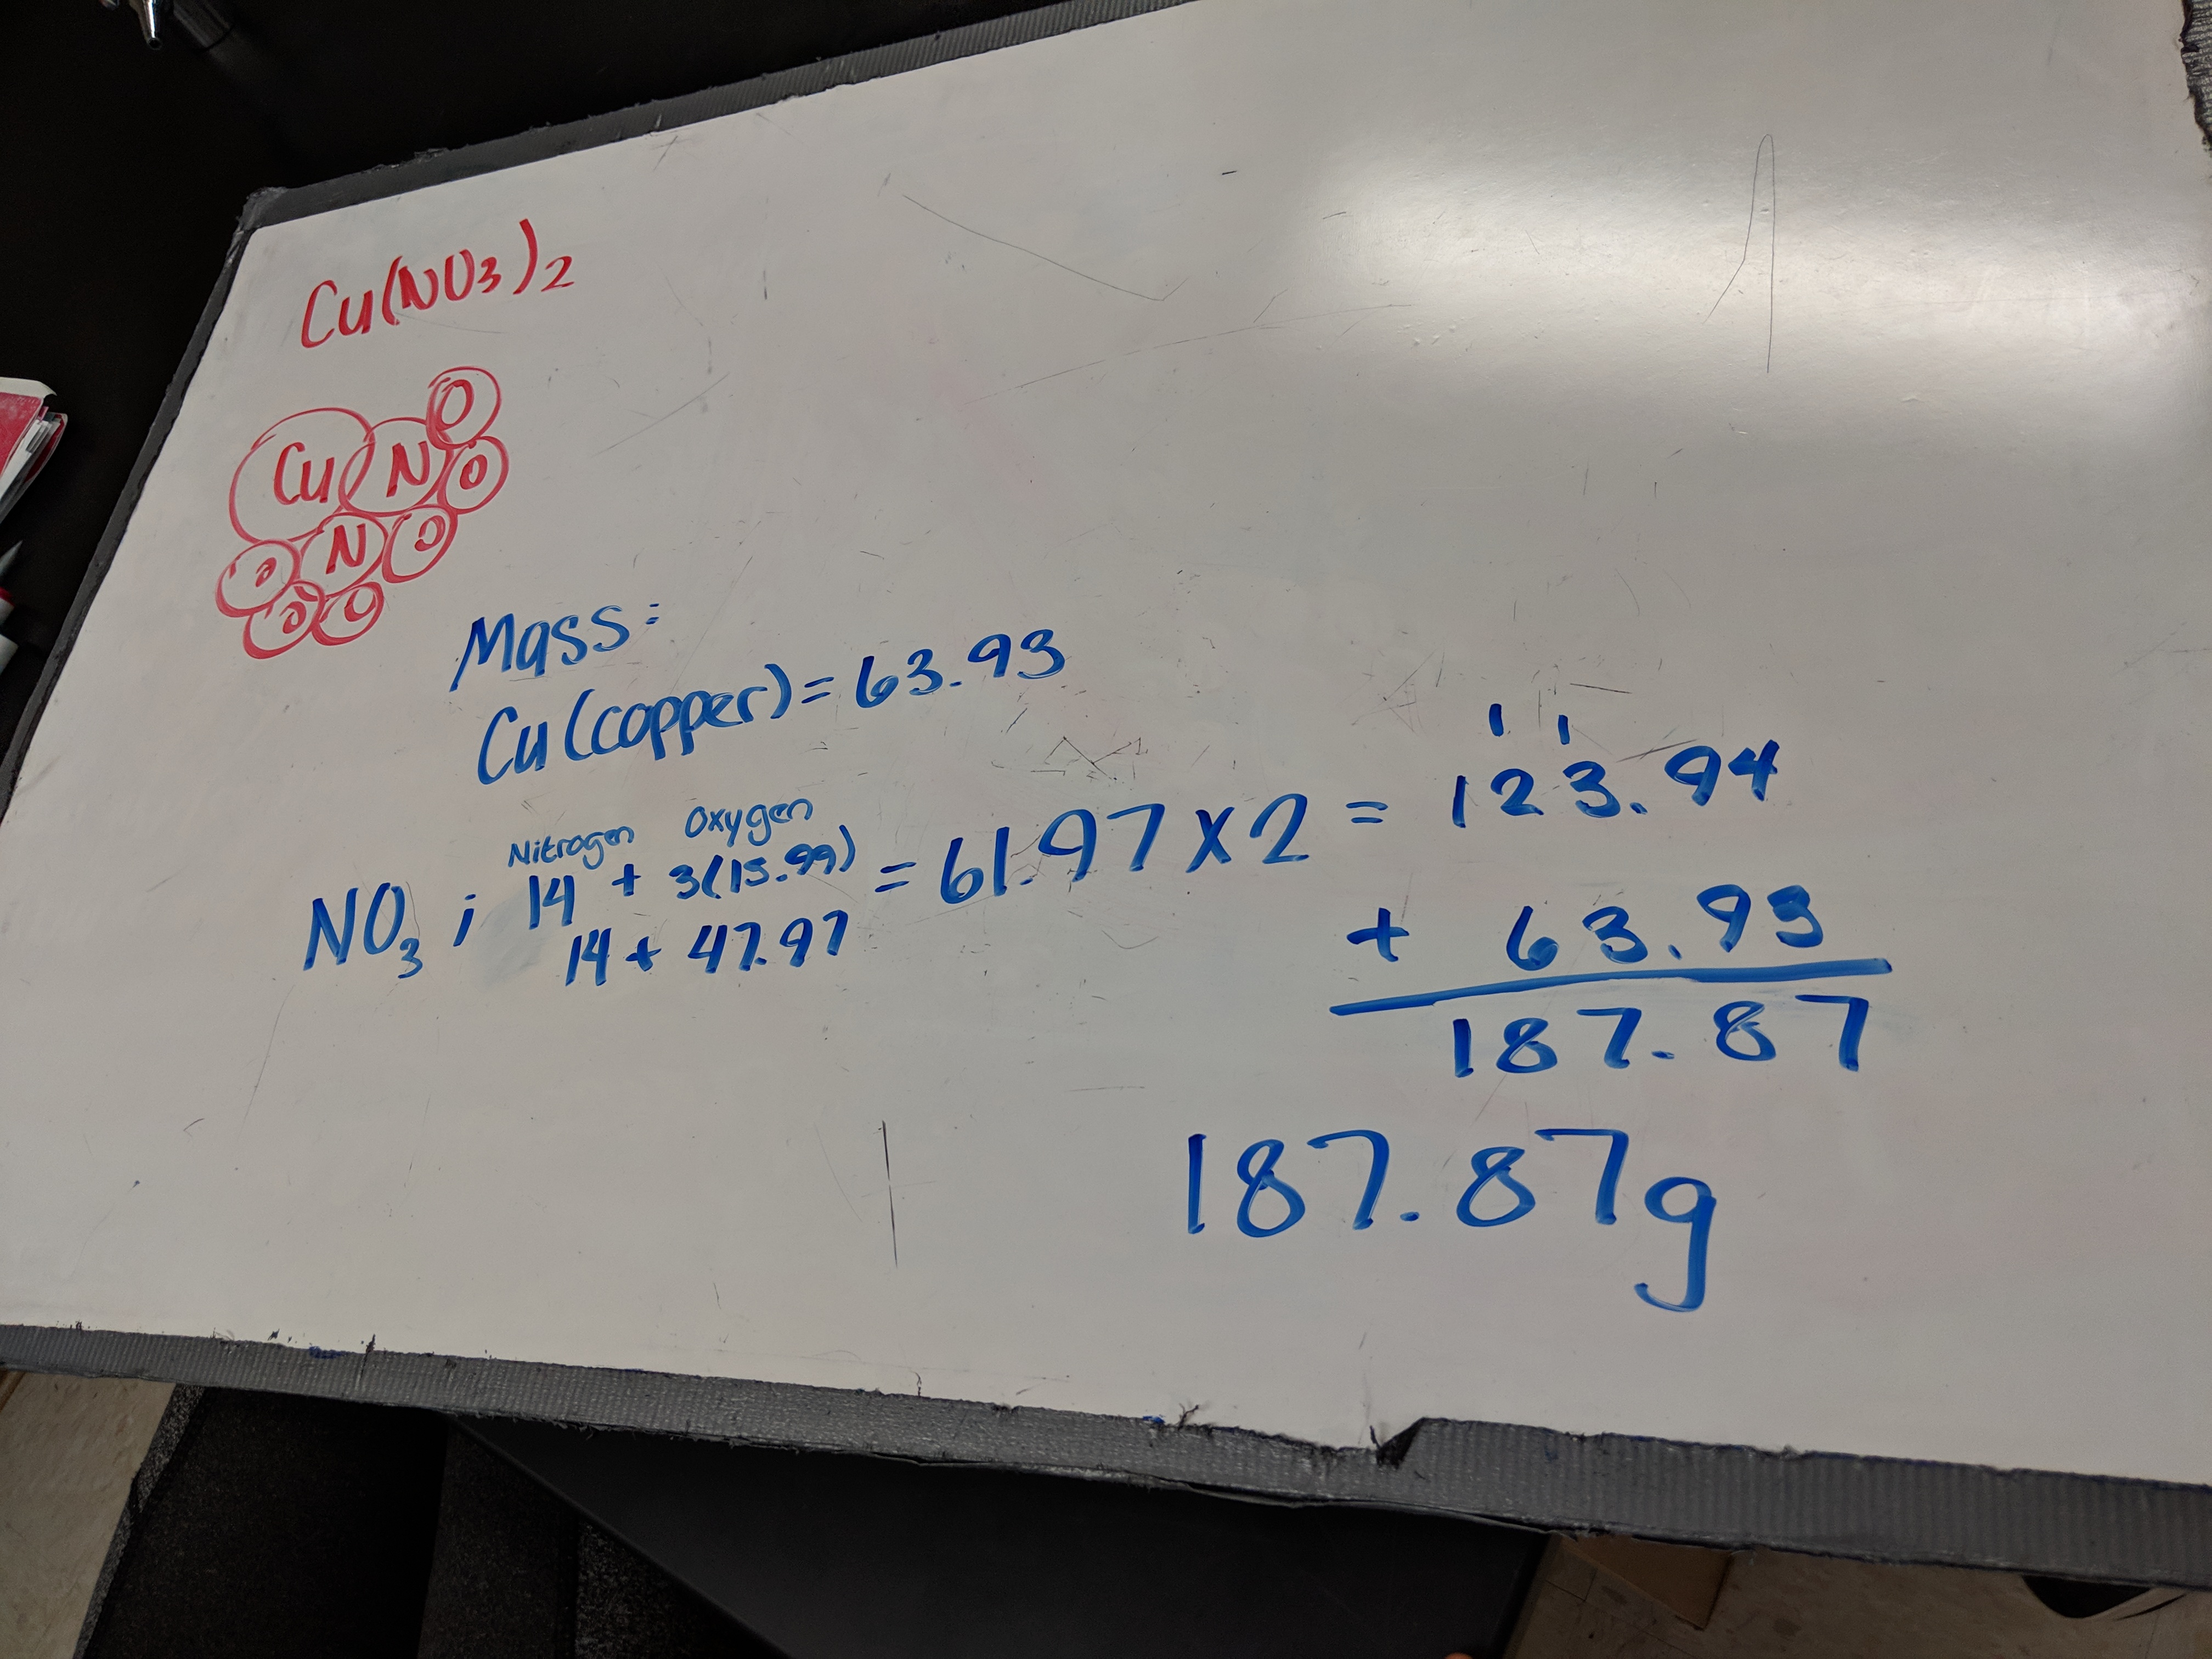 Cu(NO3)2
O
Cu N O
O N O
O O
Mass:
Cu (copper) = 63.93
Nitrogen Oxygen
NO3 ; 14 + 3(15.99) = 61.97 x 2 = 123.94
14 + 47.97
1 1
+ 63.93
187.87
187.87g